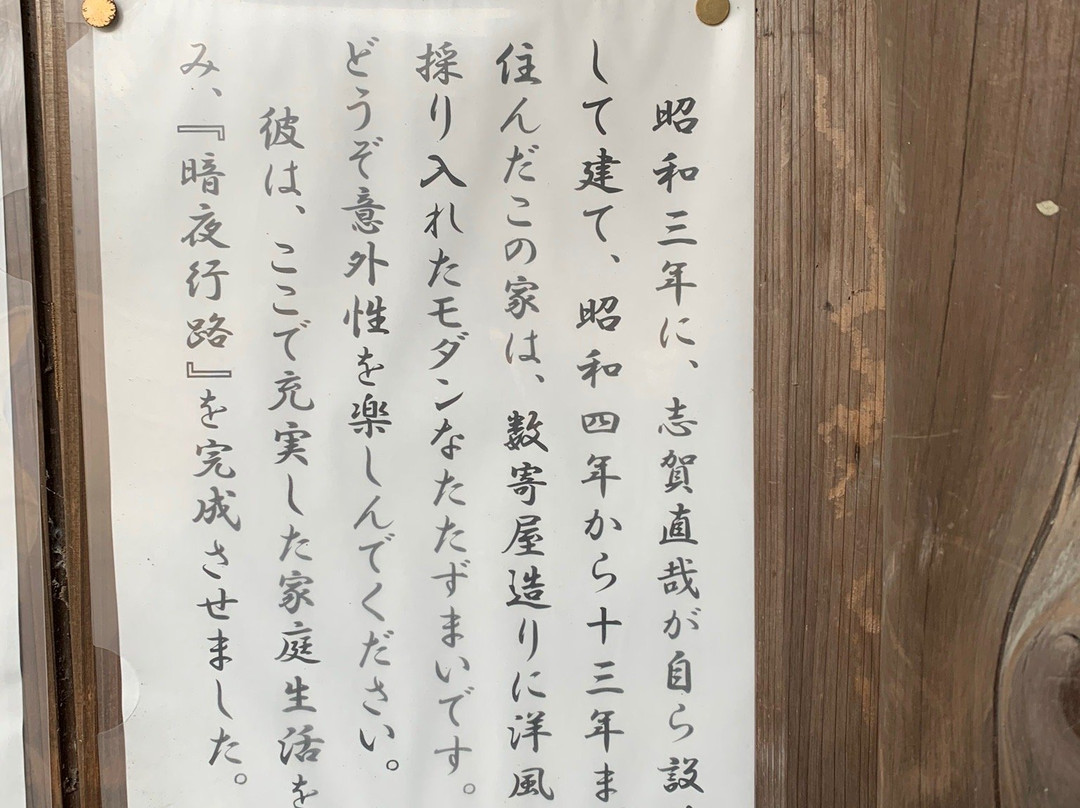 昭和三年に、志賀直哉が自ら設
して建て、昭和四年から十三年ま
住んだこの家は、数寄屋造りに洋風
採り入れたモダンなたたずまいです。
どうぞ意外性を楽しんでください。
彼は、ここで充実した家庭生活を
み、『暗夜行路』を完成させました。